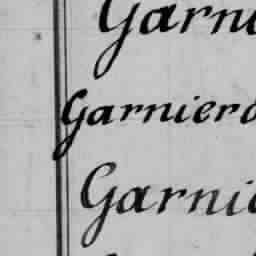 Garni
Garniero
Garnie